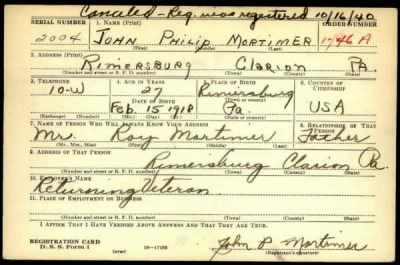 Canceled - Reg. was registered 10/16/40
SERIAL NUMBER 1. NAME (Print) ORDER NUMBER
2004 JOHN PHILIP MORTIMER 1746 A
(First) (Middle) (Last)
2. ADDRESS (Print)
RIMERSBURG CLARION PA.
(Number and street or R. F. D. number) (Town) (County) (State)
3. TELEPHONE 4. AGE IN YEARS 5. PLACE OF BIRTH 6. COUNTRY OF CITIZENSHIP
10-W 27 Rimersburg
DATE OF BIRTH (Town or county)
Feb. 15 1918 Pa. USA
(Exchange) (Number) (Mo.) (Day) (Yr.) (State or country)
7. NAME OF PERSON WHO WILL ALWAYS KNOW YOUR ADDRESS 8. RELATIONSHIP OF THAT PERSON
Mr. Roy Mortimer Father
(Mr., Mrs., Miss) (First) (Middle) (Last)
9. ADDRESS OF THAT PERSON
Rimersburg Clarion Pa
(Number and street or R. F. D. number) (Town) (County) (State)
10. EMPLOYER'S NAME
Returning Veteran
11. PLACE OF EMPLOYMENT OR BUSINESS
(Number and street or R. F. D. number) (Town) (County) (State)
I AFFIRM THAT I HAVE VERIFIED ABOVE ANSWERS AND THAT THEY ARE TRUE.
REGISTRATION CARD
D. S. S. Form 1 16-17105 John P Mortimer
(Registrant's signature)